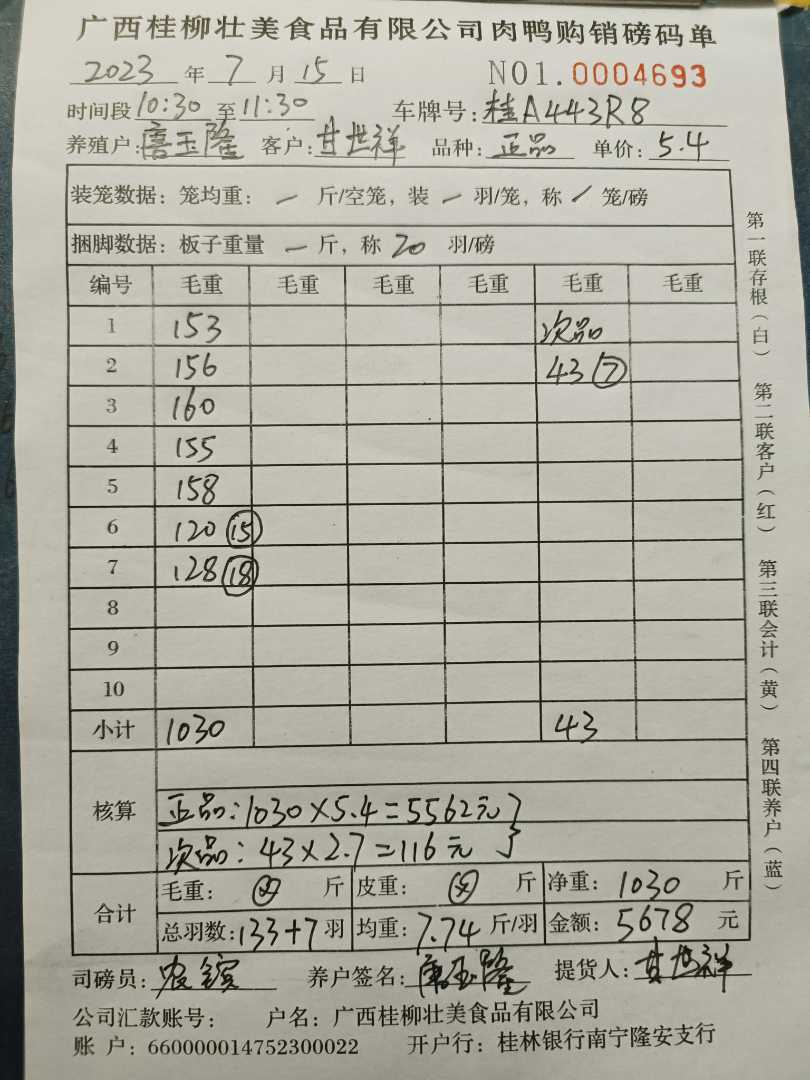 广西桂柳壮美食品有限公司肉鸭购销磅码单
2023 年 7 月 15 日 NO1.0004693
时间段 10:30 至 11:30 车牌号: 桂A443R8
养殖户: 唐玉隆 客户: 甘世祥 品种: 正品 单价: 5.4
装笼数据: 笼均重: — 斤/空笼, 装 — 羽/笼, 称 / 笼/磅
捆脚数据: 板子重量 — 斤, 称 20 羽/磅
编号 毛重 毛重 毛重 毛重 毛重 毛重
1 153 次品
2 156 43 ⑦
3 160
4 155
5 158
6 120 ⑮
7 128 ⑱
8
9
10
小计 1030 43
核算
正品: 1030×5.4=5562元}
次品: 43×2.7=116元}
合计
毛重: 斤 皮重: 斤 净重: 1030 斤
总羽数: 133+7 羽 均重: 7.74 斤/羽 金额: 5678 元
司磅员: 养户签名: 唐玉隆 提货人: 甘世祥
公司汇款账号: 户名: 广西桂柳壮美食品有限公司
账 户: 660000014752300022 开户行: 桂林银行南宁隆安支行
第一联存根(白) 第二联客户(红) 第三联会计(黄) 第四联养户(蓝)